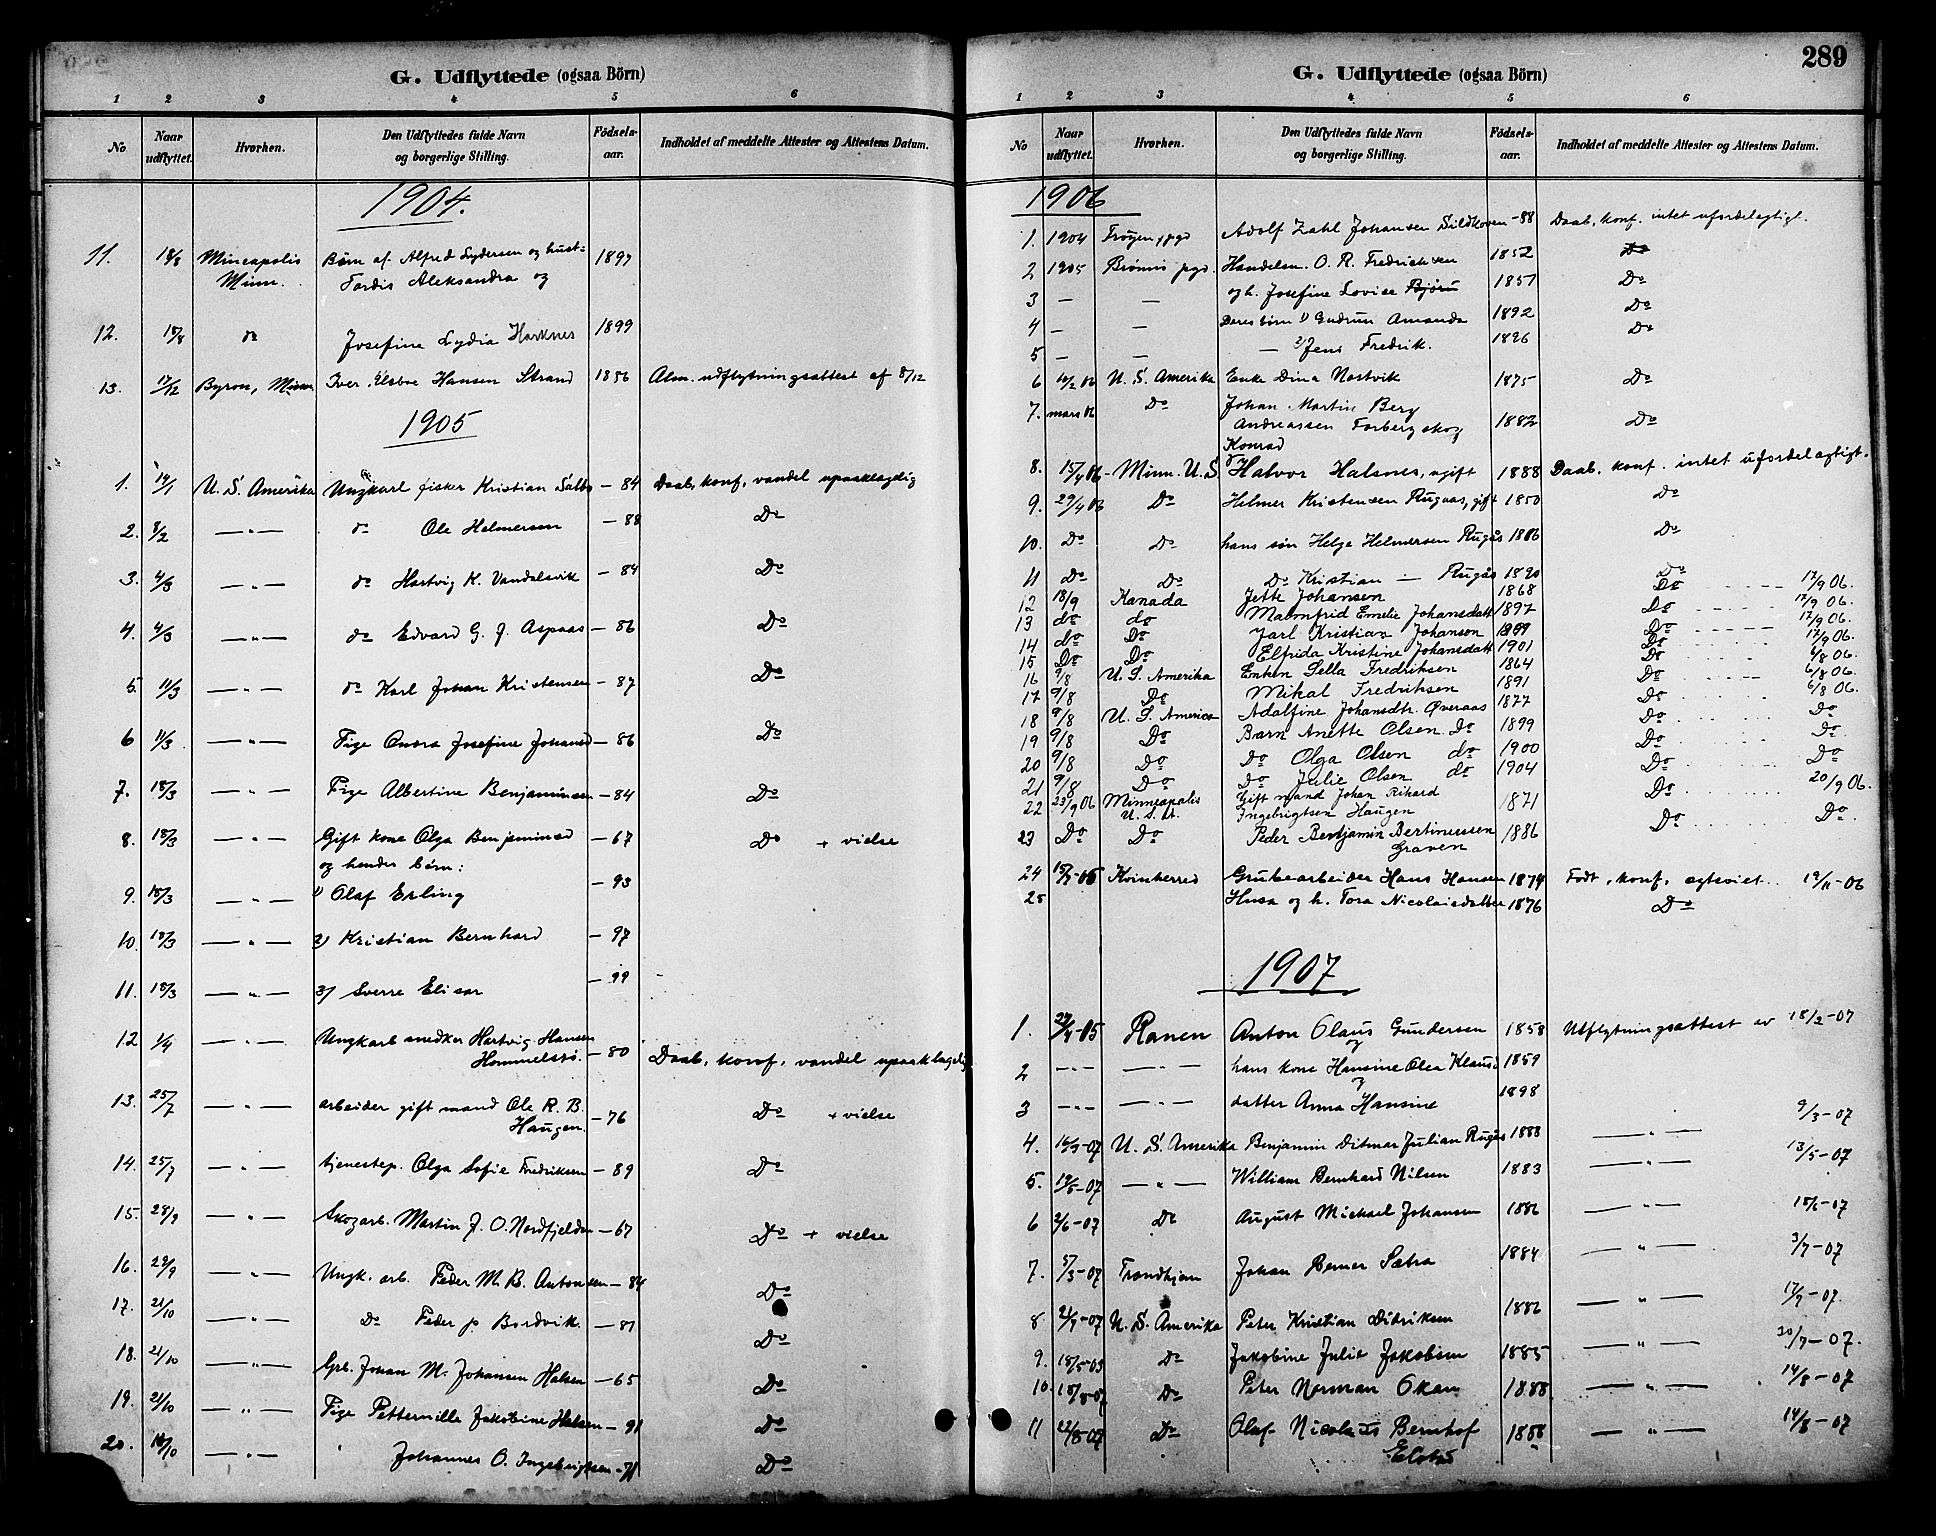 G. Udflyttede (ogsaa Börn)
1 2 3 4 5 6
No Naar udflyttet. Hvorhen. Den Udflyttedes fulde Navn og borgerlige Stilling. Födsels-aar. Indholdet af meddelte Attester og Attestens Datum.
1904.
11. 18/8 Mineapolis Børn af Alfred Lydersen og hust- 1897
Minn. Tordis Aleksandra og
12. 18/8 do Josefine Lydia Harknes 1899
13. 17/12 Byron, Minn Iver Elsboe Hansen Strand 1856 Alm. udflytningsattest af 8/12
1905
1. 19/1 U. S. Amerika Ungkarl fisker Kristian Salbo - 84 Daab, konf, vandel upaaklagelig
2. 8/2 — " — do Ole Helmersen - 88 Do
3. 4/3 — " — do Hartvig K. Vandalsvik - 84 Do
4. 4/3 — " — do Edvard G. J. Aspaas - 86 Do
5. 11/3 — " — do Karl Johan Kristensen - 87 Do
6 11/3 — " — Pige Josefine Johansd - 86 Do
7. 18/3 — " — Pige Albertine Benjaminsen - 84 Do
8. 18/3 — " — Gift kone Olga Benjaminsd - 67 Do + vielse
og hendes børn:
9. 18/3 — " — 1) Olaf Erling - 93
10. 18/3 — " — 2) Kristian Bernhard - 97
11. 18/3 — " — 3) Sverre Elisar - 99
12 1/4 — " — Ungkarl snedker Hartvig Hansen
Hommelstø. - 80 Daab, konf, vandel upaaklagelig
13. 25/7 — " — arbeider gift mand Ole R. B.
Haugen. - 76 Do + vielse
14. 25/7 — " — tjenestep. Olga Sofie Fredriksen - 89 Do
15. 28/9 — " — Skogarb. Martin J. O. Nordfjelden - 67 Do + vielse
16. 29/9 — " — Ungk. arb. Peder M. B. Antonsen - 84 Do
17. 21/10 — " — Do Peder p. Bordvik - 81 Do
18. 21/10 — " — Grb. Johan M. Johansen Halsen - 65 Do
19. 21/10 — " — Pige Petternille Jakobine Halsen - 91 Do
20. 18/10 — " — Johannes O. Ingebrigtsen - 71 Do
289
G. Udflyttede (ogsaa Börn)
1 2 3 4 5 6
No Naar udflyttet. Hvorhen. Den Udflyttedes fulde Navn og borgerlige Stilling. Födsels-aar. Indholdet af meddelte Attester og Attestens Datum.
1906
1. 1904 Frøyen pgd Adolf Zahl Johansen Sildhoven - 88 Daab, konf. intet ufordelagtigt.
2 1905 Brønnø pgd. Handelsm. O. R. Fredriksen 1852 Do
3 — — og h. Josefine Lovise 1851 Do
4 — — Deres børn 1) Gudrun Amanda 1892 Do
5 — — — 2) Jens Fredrik. 1896 Do
6 10/2 06 U. S. Amerika Enke Dina Nostvik 1875 Do
7. mars 06 Do Johan Martin Berg
Andreassen Forbergskog 1882 Do
Konrad
8. 15/4 06 - Minn. U. S. Halvor Halsnes, ugift 1888 Daab, konf. intet ufordelagtigt.
9. 29/4 06 Do Helmer Kristensen Rugaas, gift 1850 Do
10. Do Do hans søn Helge Helmersen Rugås 1886 Do
11 Do Do Do Kristian — Rugås 1890 Do
12 18/9 Kanada Jette Johansen 1868 Do 17/9 06.
13 do do Malmfrid Emelie Johansdatt 1897 Do 17/9 06.
14 do Do Jarl Kristian Johanson 1899 Do 17/9 06.
15 Do Do Elfrida Kristine Johansdatt 1901 Do 17/9 06.
16 9/8 U. S. Amerika Enken Sella Fredriksen 1864 Do 6/8 06.
17 9/8 Do Mikal Fredriksen 1891 Do 6/8 06.
18 9/8 U. S. America Adalfine Johansdtr. Øveraas 1877 Do 6/8 06.
19 9/8 Do Barn Anette Olsen do 1899 Do Do
20 9/8 Do Do Olga Olsen do 1900 Do Do
21 9/8 Do Do Julie Olsen do 1904 Do Do
22 23/9 06 Minneapolis Gift mand Johan Rikard 1871 Do 20/9 06.
U. S. A. Ingebrigtsen Haugen
23 Do Do Peder Benjamin Bertinussen 1886 Do Do
Graven
24 Kvinherred Grubearbeider Hans Hansen 1874 Født, konf, egteviet. 19/11-06
25 Husa og h. Tora Nicolaisdatter 1876 Do
1907
1. 27/4-05 Ranen Anton Olaus Gundersen 1858 Udflytningsattest av 18/2-07
og
2 — " — — " — hans kone Hansine Olea Klausd 1859
og
3 — " — — " — datter Anna Hansine 1898
4. 16/3-07 U. S. Amerika Benjamin Ditmar Julian Rugås 1888 — " — 9/3-07
5. 19/5-07 — " — William Bernhard Nilsen 1883 — " — 13/5-07
6 2/6-07 Do August Michael Johansen 1886 — " — 15/6-07
7. 5/3-07 Trondhjem Johan Berner Sætra 1884 — " — 3/7-07
8 21/9-07 U. S. Amerika Peter Kristian Didriksen 1886 — " — 17/9-07.
9. 18/5-03 Do Jakobine Julie Jakobsen 1885 — " — 30/7-07.
10. 18/8-07 Do Peter Norman Okan 1888 — " — 14/8-07
11 22/8-07 Do Olaf Nicolaus Bernhof 1888 — " — 14/8-07